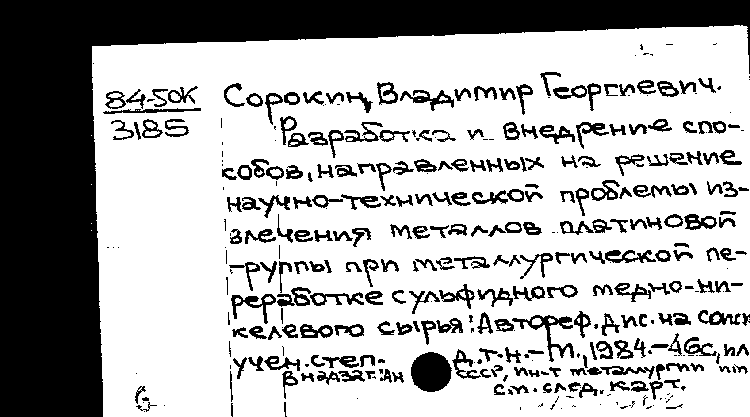 84-50К
3185
Сорокин, Владимир Георгиевич.
Разработка и внедрение спо-
собов, направленных на решение
научно-технической проблемы из-
влечения металлов платиновой
группы при металлургической пе-
реработке сульфидного медно-ни-
келевого сырья: Автореф. дис. на соиск
учен. степ. д.т.н. - М., 1984. - 46с, ил
В надзаг.: АН СССР, ин-т металлургии
см. след. карт.